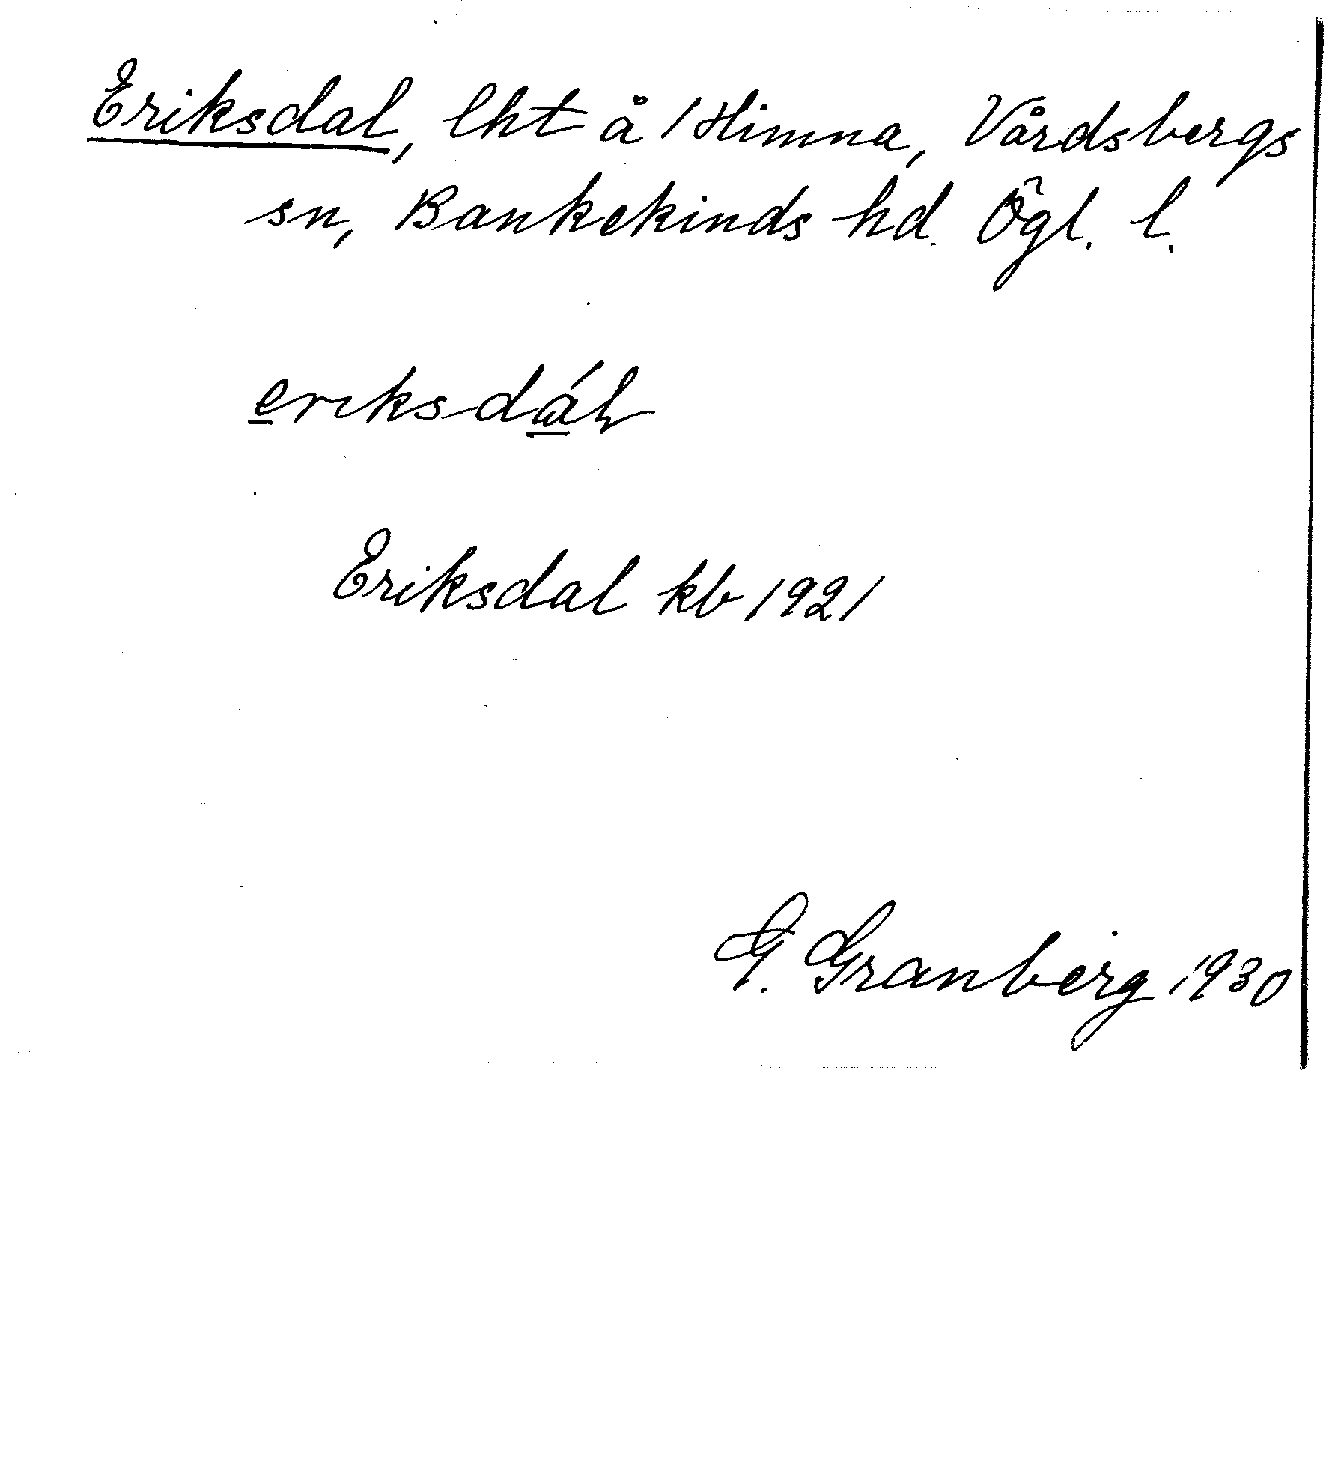 Eriksdal, lht å 1 Himna, Vårdsbergs
sn, Bankekinds hd. Ögl. l.
eriksdál
Eriksdal kb 1921
G. Granberg 1930